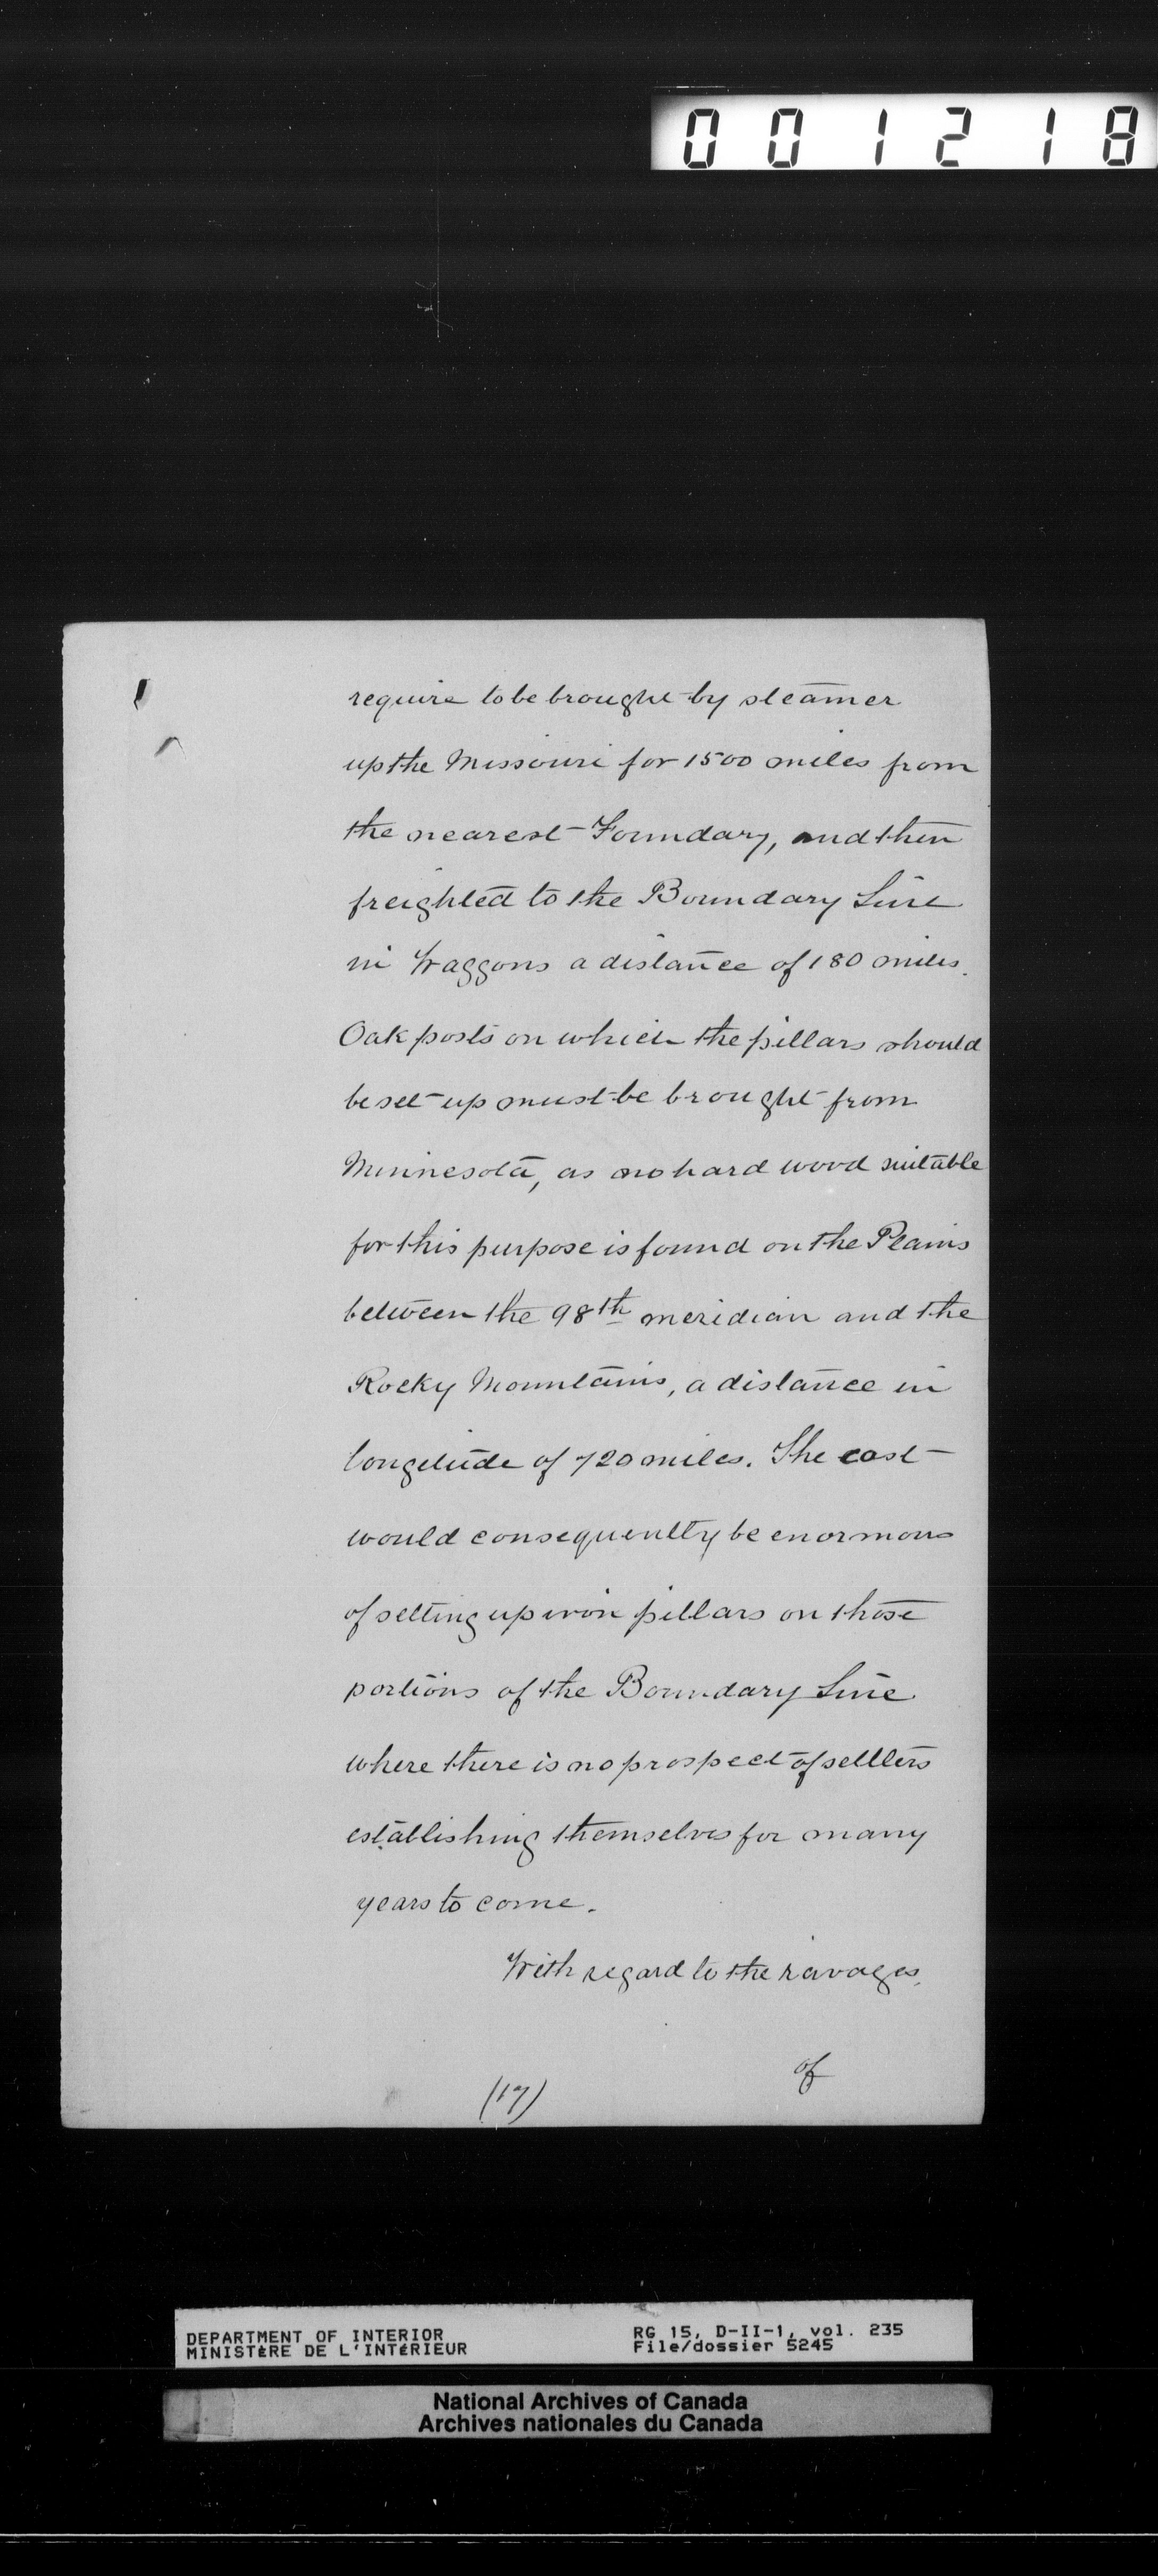 001218
require to be brought by steamer
up the Missouri for 1500 miles from
the nearest Foundary, and then
freighted to the Boundary Line
in Waggons a distance of 180 miles.
Oak posts on which the pillars should
be set up must be brought from
Minnesota, as no hard wood suitable
for this purpose is found on the Plains
between the 98th meridian and the
Rocky Mountains, a distance in
longitude of 720 miles. The cost
would consequently be enormous
of setting up iron pillars on those
portions of the Boundary Line
where there is no prospect of settlers
establishing themselves for many
years to come.
With regard to the ravages
of
(17)
DEPARTMENT OF INTERIOR
MINISTÈRE DE L'INTÉRIEUR
RG 15, D-II-1, vol. 235
File/dossier 5245
National Archives of Canada
Archives nationales du Canada